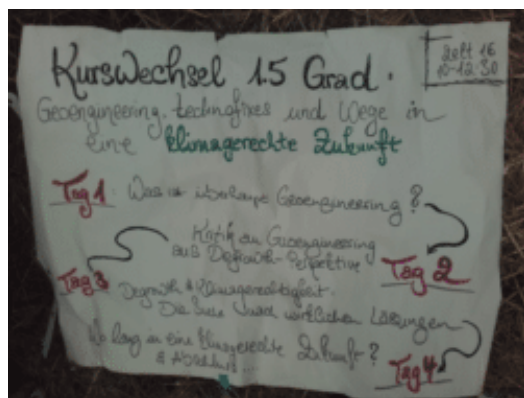 Kurswechsel 1.5 Grad.
Zelt 16
10-12:30
Geoengineering, technofixes und Wege in
eine klimagerechte Zukunft
Tag 1: Was ist überhaupt Geoengineering?
Kritik an Geoengineering
aus Degrowth-Perspektive
Tag 2
Tag 3
Degrowth & Klimagerechtigkeit.
Die Suche nach wirklichen Lösungen
Wo lang in eine klimagerechte Zukunft?
& Abschluss...
Tag 4